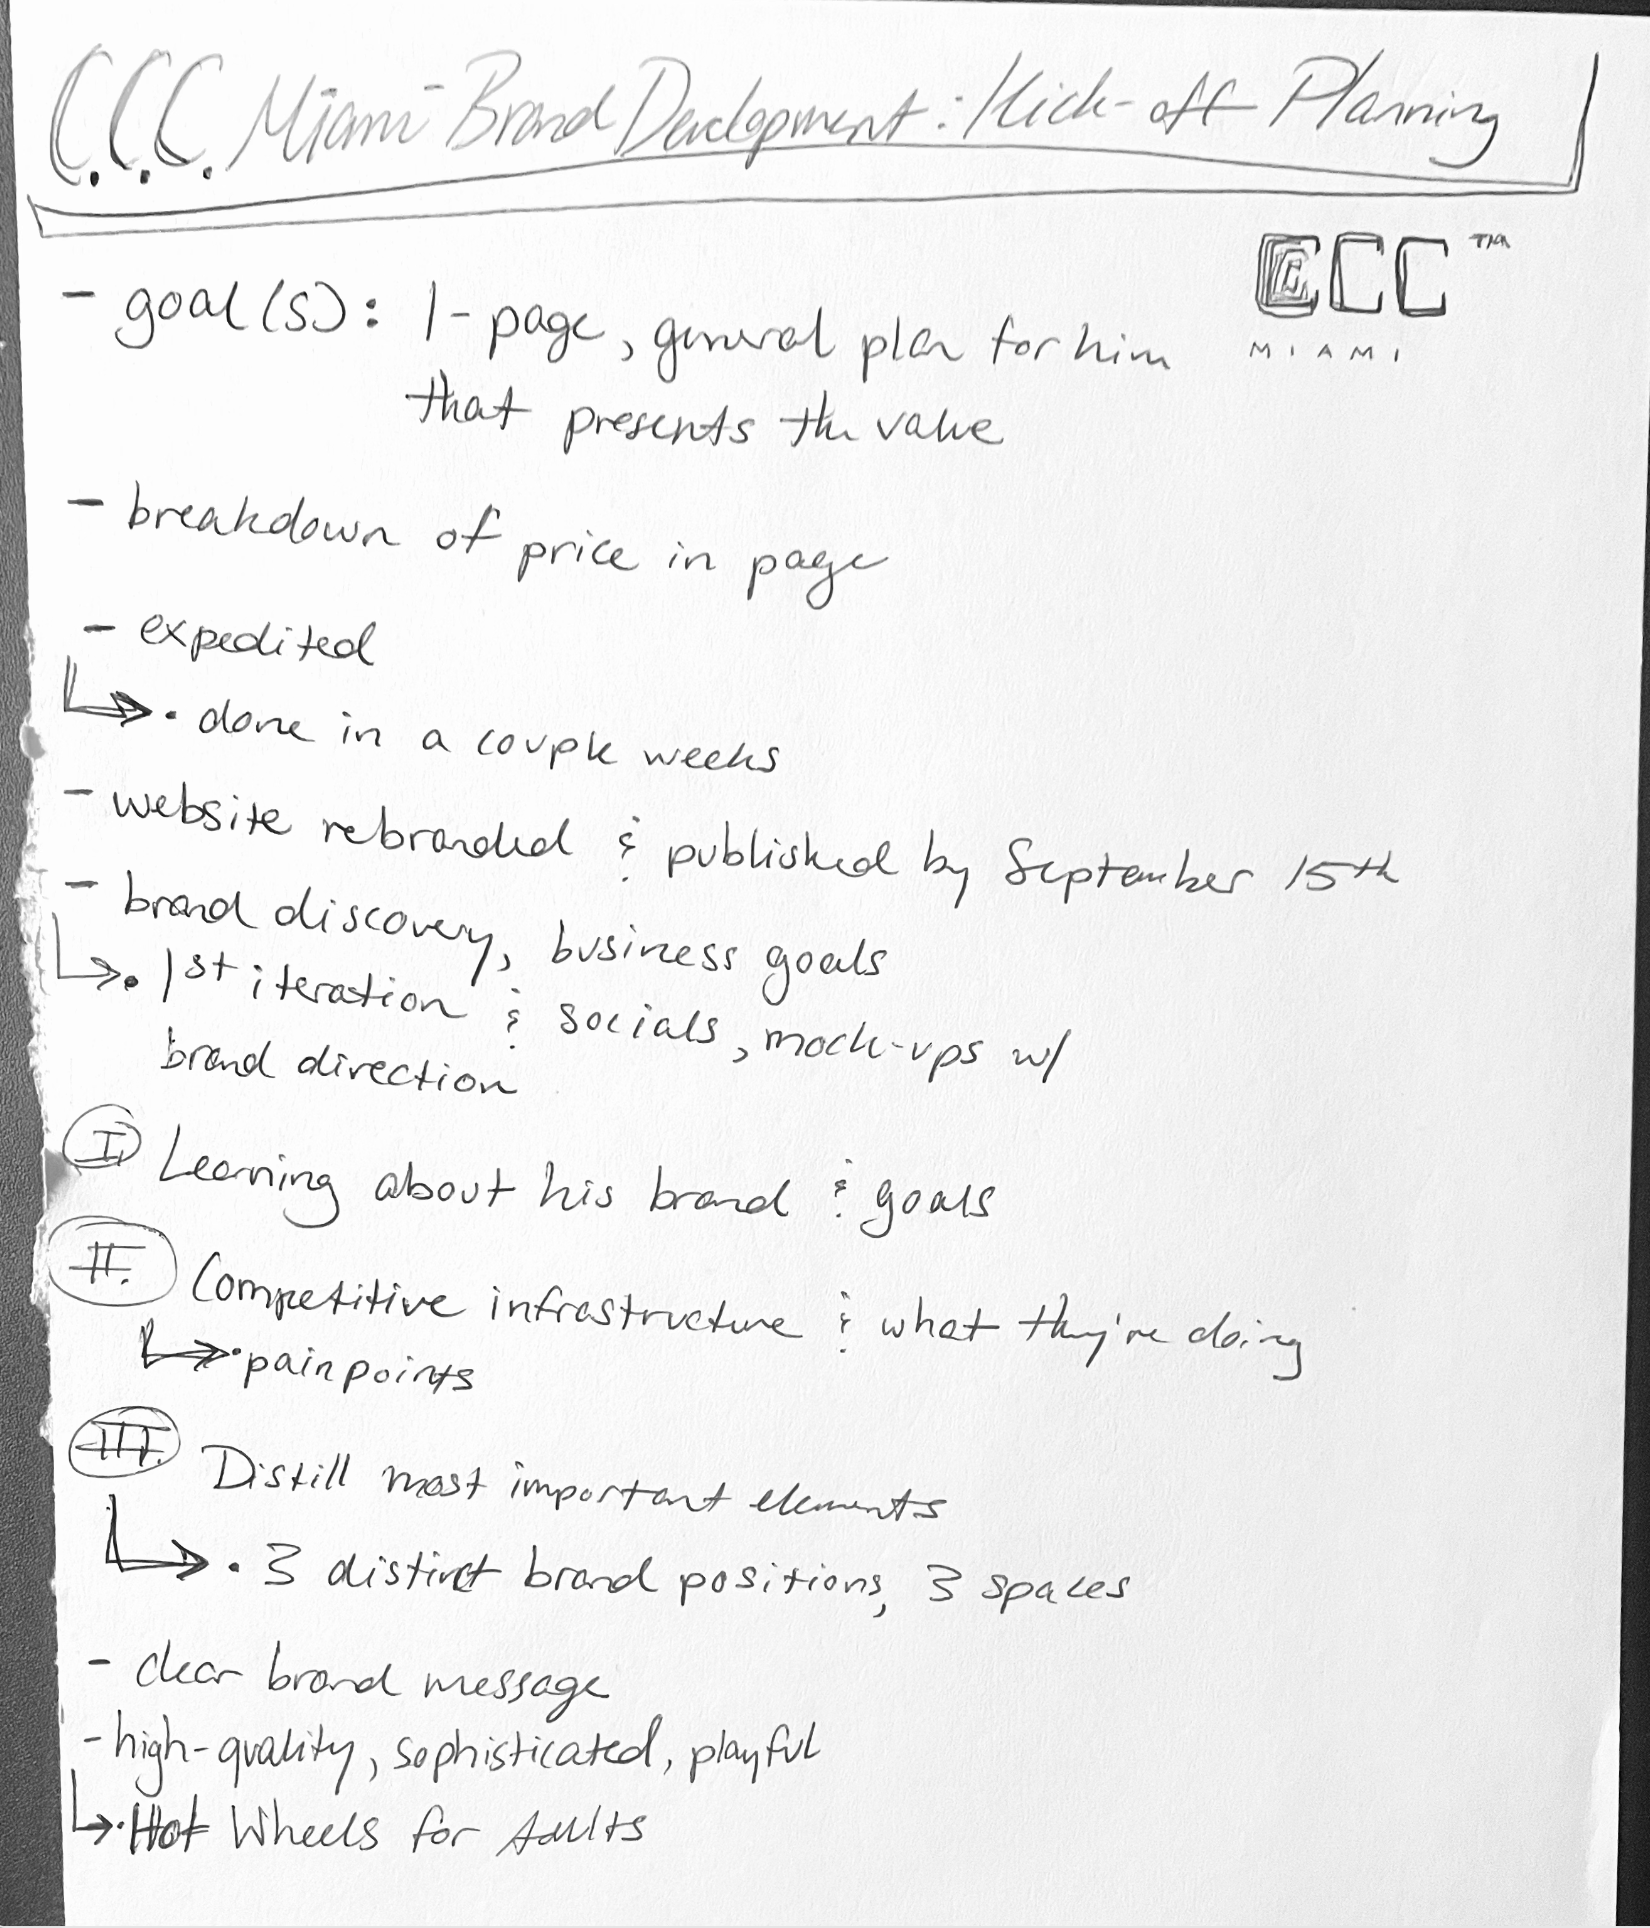 C.C.C. Miami Brand Development: Kick-off Planning
CCC™
MIAMI
- goal(s): 1-page, general plan for him
that presents the value
- breakdown of price in page
- expedited
• done in a couple weeks
- website rebranded & published by September 15th
- brand discovery, business goals
• 1st iteration & socials, mock-ups w/
brand direction
I. Learning about his brand & goals
II. Competitive infrastructure & what they're doing
• pain points
III. Distill most important elements
• 3 distinct brand positions, 3 spaces
- clear brand message
- high-quality, sophisticated, playful
• Hot Wheels for Adults